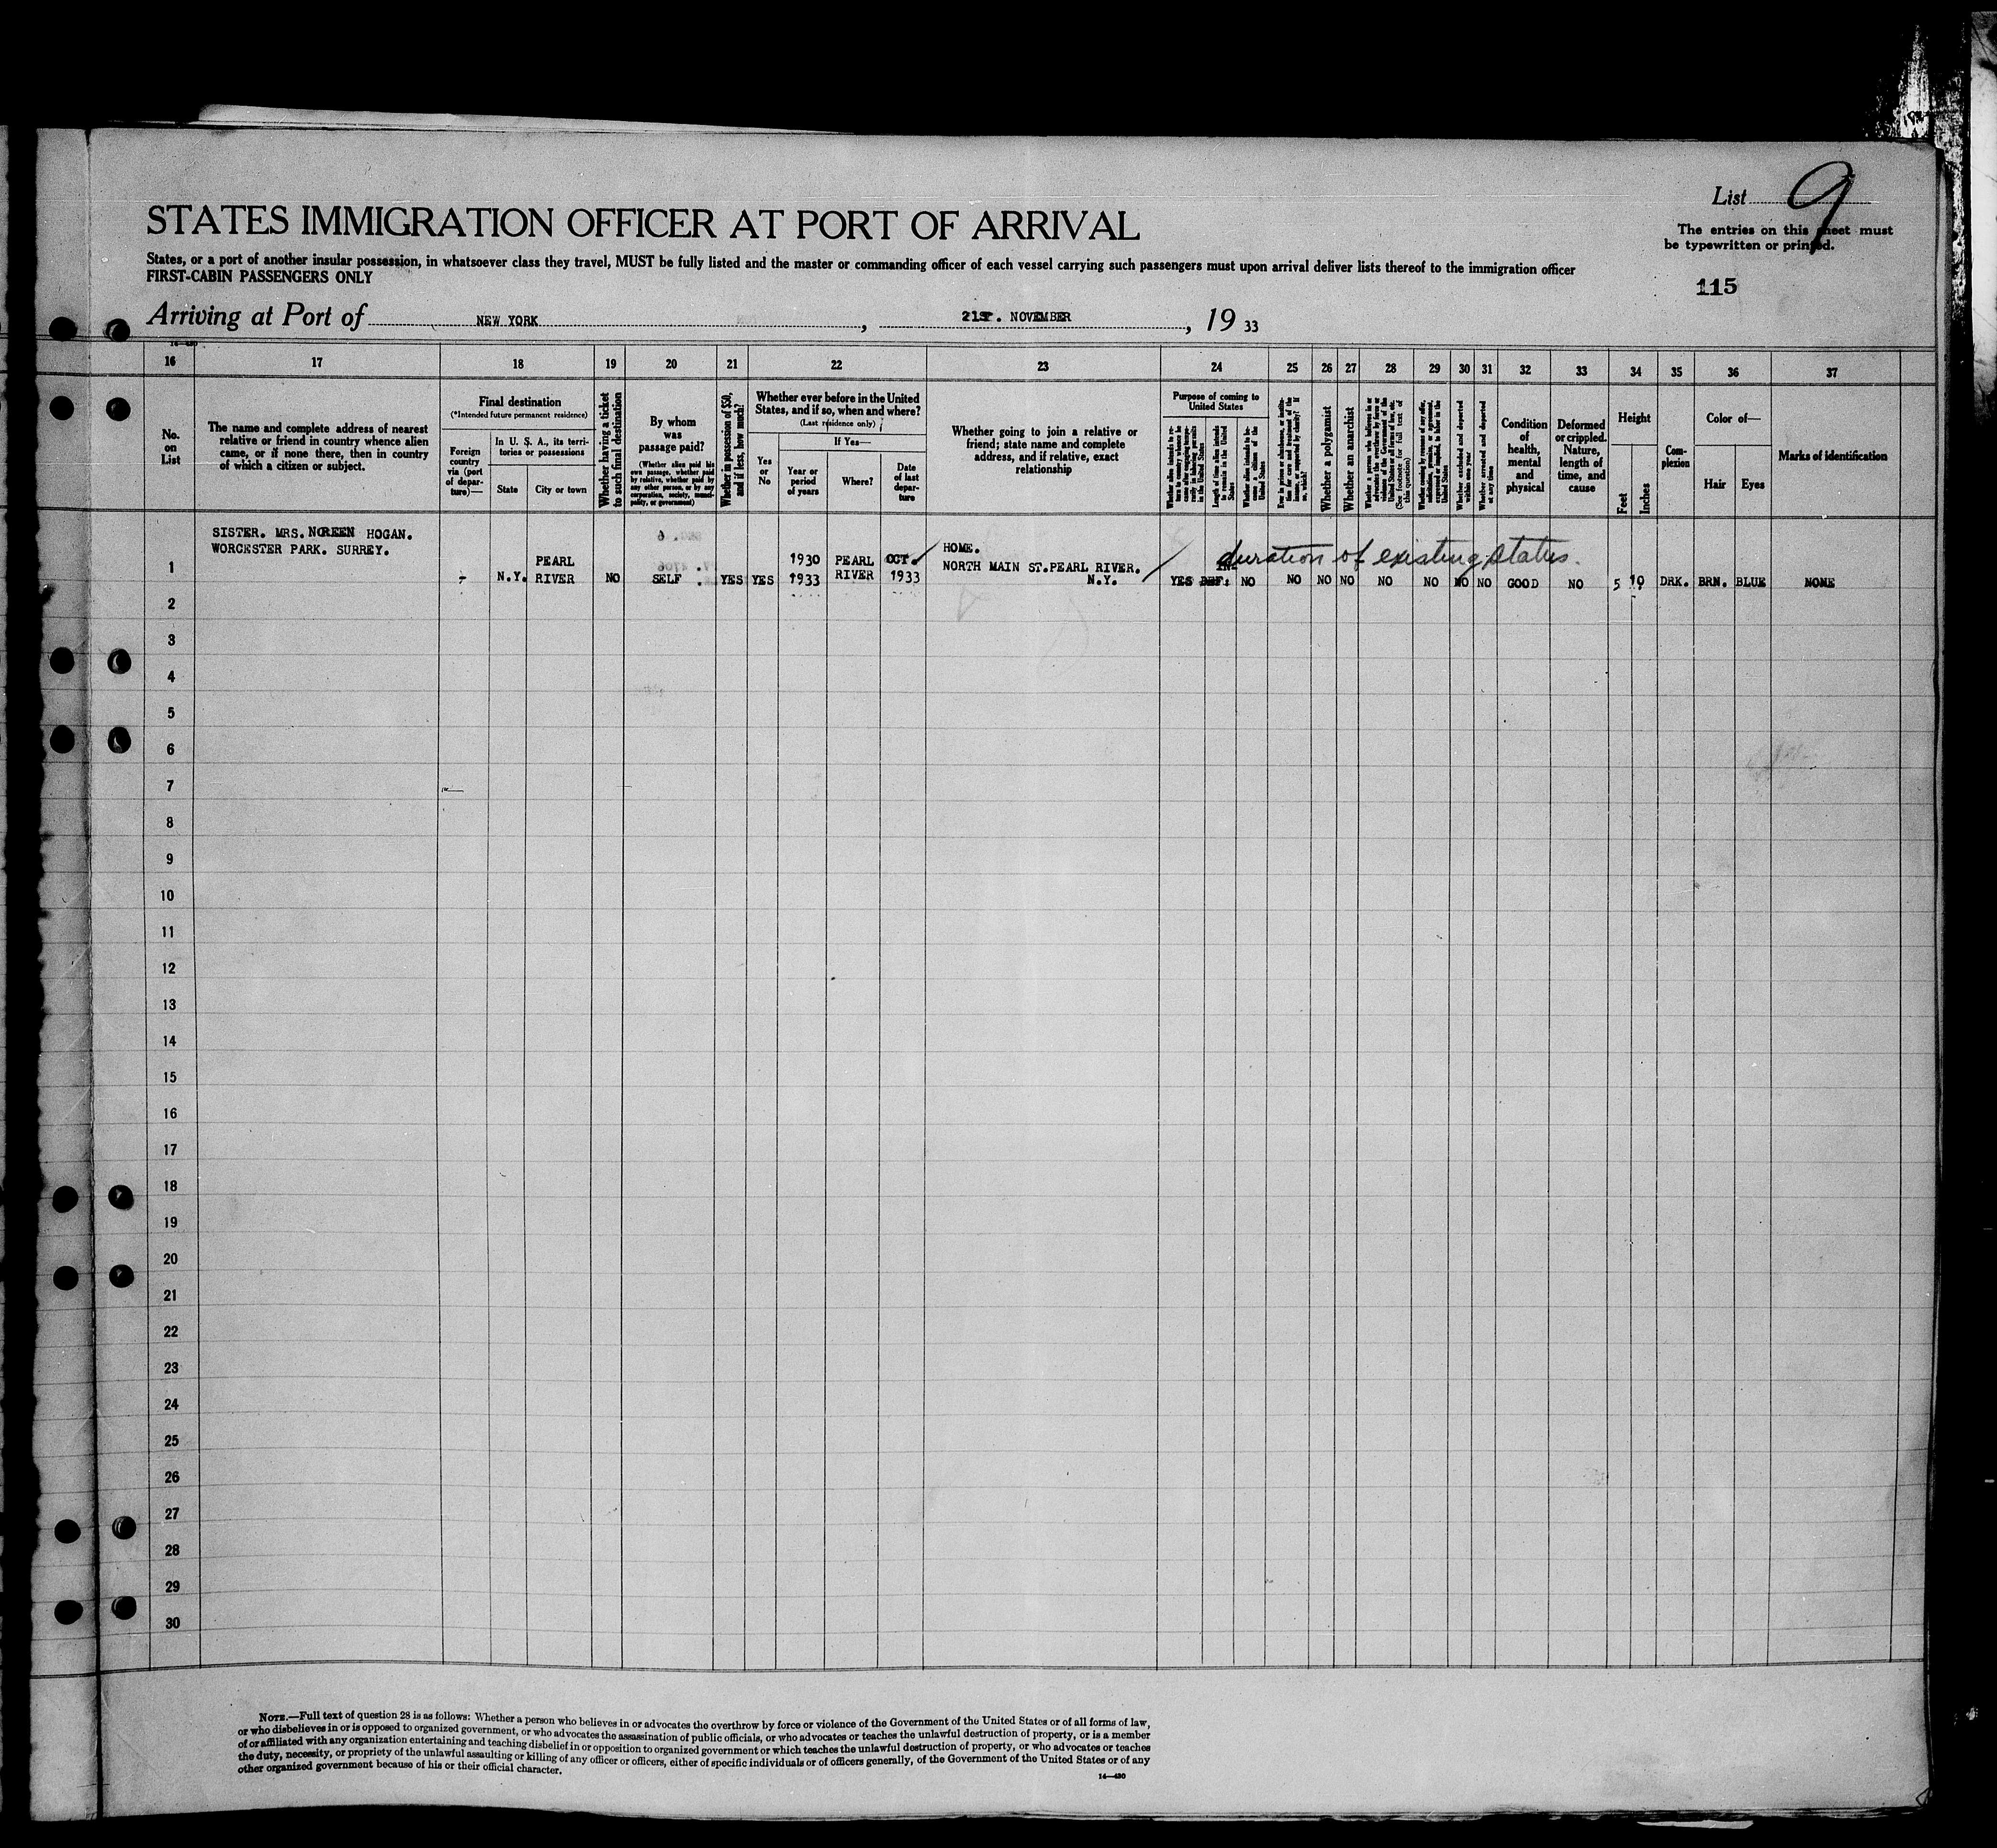 List 9
STATES IMMIGRATION OFFICER AT PORT OF ARRIVAL
The entries on this sheet must
be typewritten or printed.
States, or a port of another insular possession, in whatsoever class they travel, MUST be fully listed and the master or commanding officer of each vessel carrying such passengers must upon arrival deliver lists thereof to the immigration officer
FIRST-CABIN PASSENGERS ONLY
115
Arriving at Port of NEW YORK, 21ST. NOVEMBER, 19 33
16 17 18 19 20 21 22 23 24 25 26 27 28 29 30 31 32 33 34 35 36 37
No.
on
List
The name and complete address of nearest
relative or friend in country whence alien
came, or if none there, then in country
of which a citizen or subject.
Final destination
(*Intended future permanent residence)
Foreign
country
via (port
of depar-
ture)—
In U. S. A., its terri-
tories or possessions
State
City or town
Whether having a ticket
to such final destination
By whom
was
passage paid?
(Whether alien paid his
own passage, whether paid
by relative, whether paid by
any other person, or by any
corporation, society, munici-
pality, or government)
Whether in possession of $50,
and if less, how much?
Whether ever before in the United
States, and if so, when and where?
(Last residence only)
Yes
or
No
If Yes—
Year or
period
of years
Where?
Date
of last
depar-
ture
Whether going to join a relative or
friend; state name and complete
address, and if relative, exact
relationship
Purpose of coming to
United States
Length of time alien intends
to remain in the United
States
Whether alien intends to be-
come a citizen of the
United States
Whether a polygamist
Whether an anarchist
(See footnote for full text of
this question)
Whether excluded and deported
within one year
Whether arrested and deported
at any time
Condition
of
health,
mental
and
physical
Deformed
or crippled.
Nature,
length of
time, and
cause
Height
Feet
Inches
Com-
plexion
Color of—
Hair
Eyes
Marks of identification
SISTER. MRS. NOREEN HOGAN.
WORCESTER PARK. SURREY.
1 - N.Y. PEARL RIVER NO SELF YES YES 1930 1933 PEARL RIVER OCT. 1933
HOME.
NORTH MAIN ST. PEARL RIVER.
N.Y.
duration of existing status.
YES IN-DEF. NO NO NO NO NO NO NO NO GOOD NO 5 10 DRK. BRN. BLUE NONE
2
3
4
5
6
7
8
9
10
11
12
13
14
15
16
17
18
19
20
21
22
23
24
25
26
27
28
29
30
NOTE.—Full text of question 28 is as follows: Whether a person who believes in or advocates the overthrow by force or violence of the Government of the United States or of all forms of law,
or who disbelieves in or is opposed to organized government, or who advocates the assassination of public officials, or who advocates or teaches the unlawful destruction of property, or is a member
of or affiliated with any organization entertaining and teaching disbelief in or opposition to organized government or which teaches the unlawful destruction of property, or who advocates or teaches
the duty, necessity, or propriety of the unlawful assaulting or killing of any officer or officers, either of specific individuals or of officers generally, of the Government of the United States or of any
other organized government because of his or their official character.
14—430